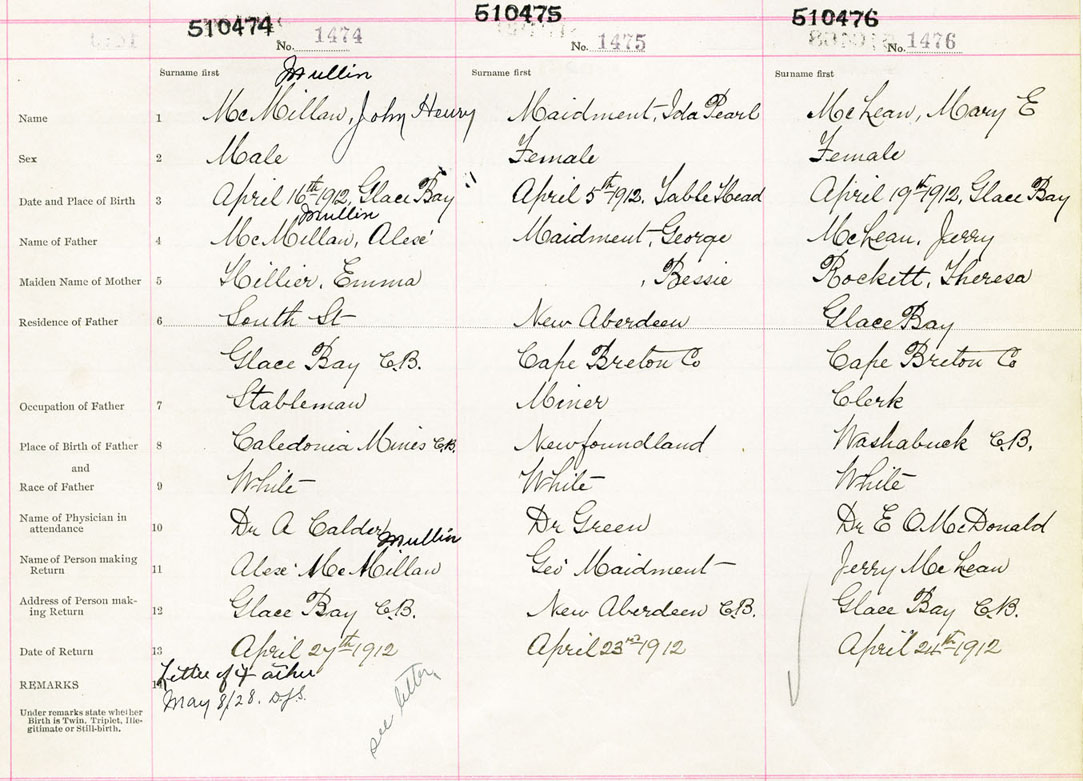 510474 510475 510476
No. 1474 No. 1475 No. 1476
Surname first Surname first Surname first
Mullin
Name 1 McMillan, John Henry Maidment, Ida Pearl McLean, Mary E
Sex 2 Male Female Female
Date and Place of Birth 3 April 16th 1912, Glace Bay " April 5th 1912, Sable Head April 19th 1912, Glace Bay
Mullin
Name of Father 4 McMillan, Alex' Maidment, George McLean, Jerry
Maiden Name of Mother 5 Hillier, Emma , Bessie Rockett, Theresa
Residence of Father 6 South St New Aberdeen Glace Bay
Glace Bay C.B. Cape Breton Co Cape Breton Co
Occupation of Father 7 Stableman Miner Clerk
Place of Birth of Father 8 Caledonia Mines C.B. Newfoundland Washabuck C.B.
and
Race of Father 9 White White White
Name of Physician in
attendance 10 Dr A Calder Dr Green Dr E O McDonald
Mullin
Name of Person making
Return 11 Alex' McMillan Geo' Maidment Jerry McLean
Address of Person mak-
ing Return 12 Glace Bay C.B. New Aberdeen C.B. Glace Bay C.B.
Date of Return 13 April 27th 1912 April 23rd 1912 April 24th 1912
REMARKS 14 Letter of Father
May 8/28. D.J.S.
see letter
Under remarks state whether
Birth is Twin, Triplet, Ille-
gitimate or Still-birth.